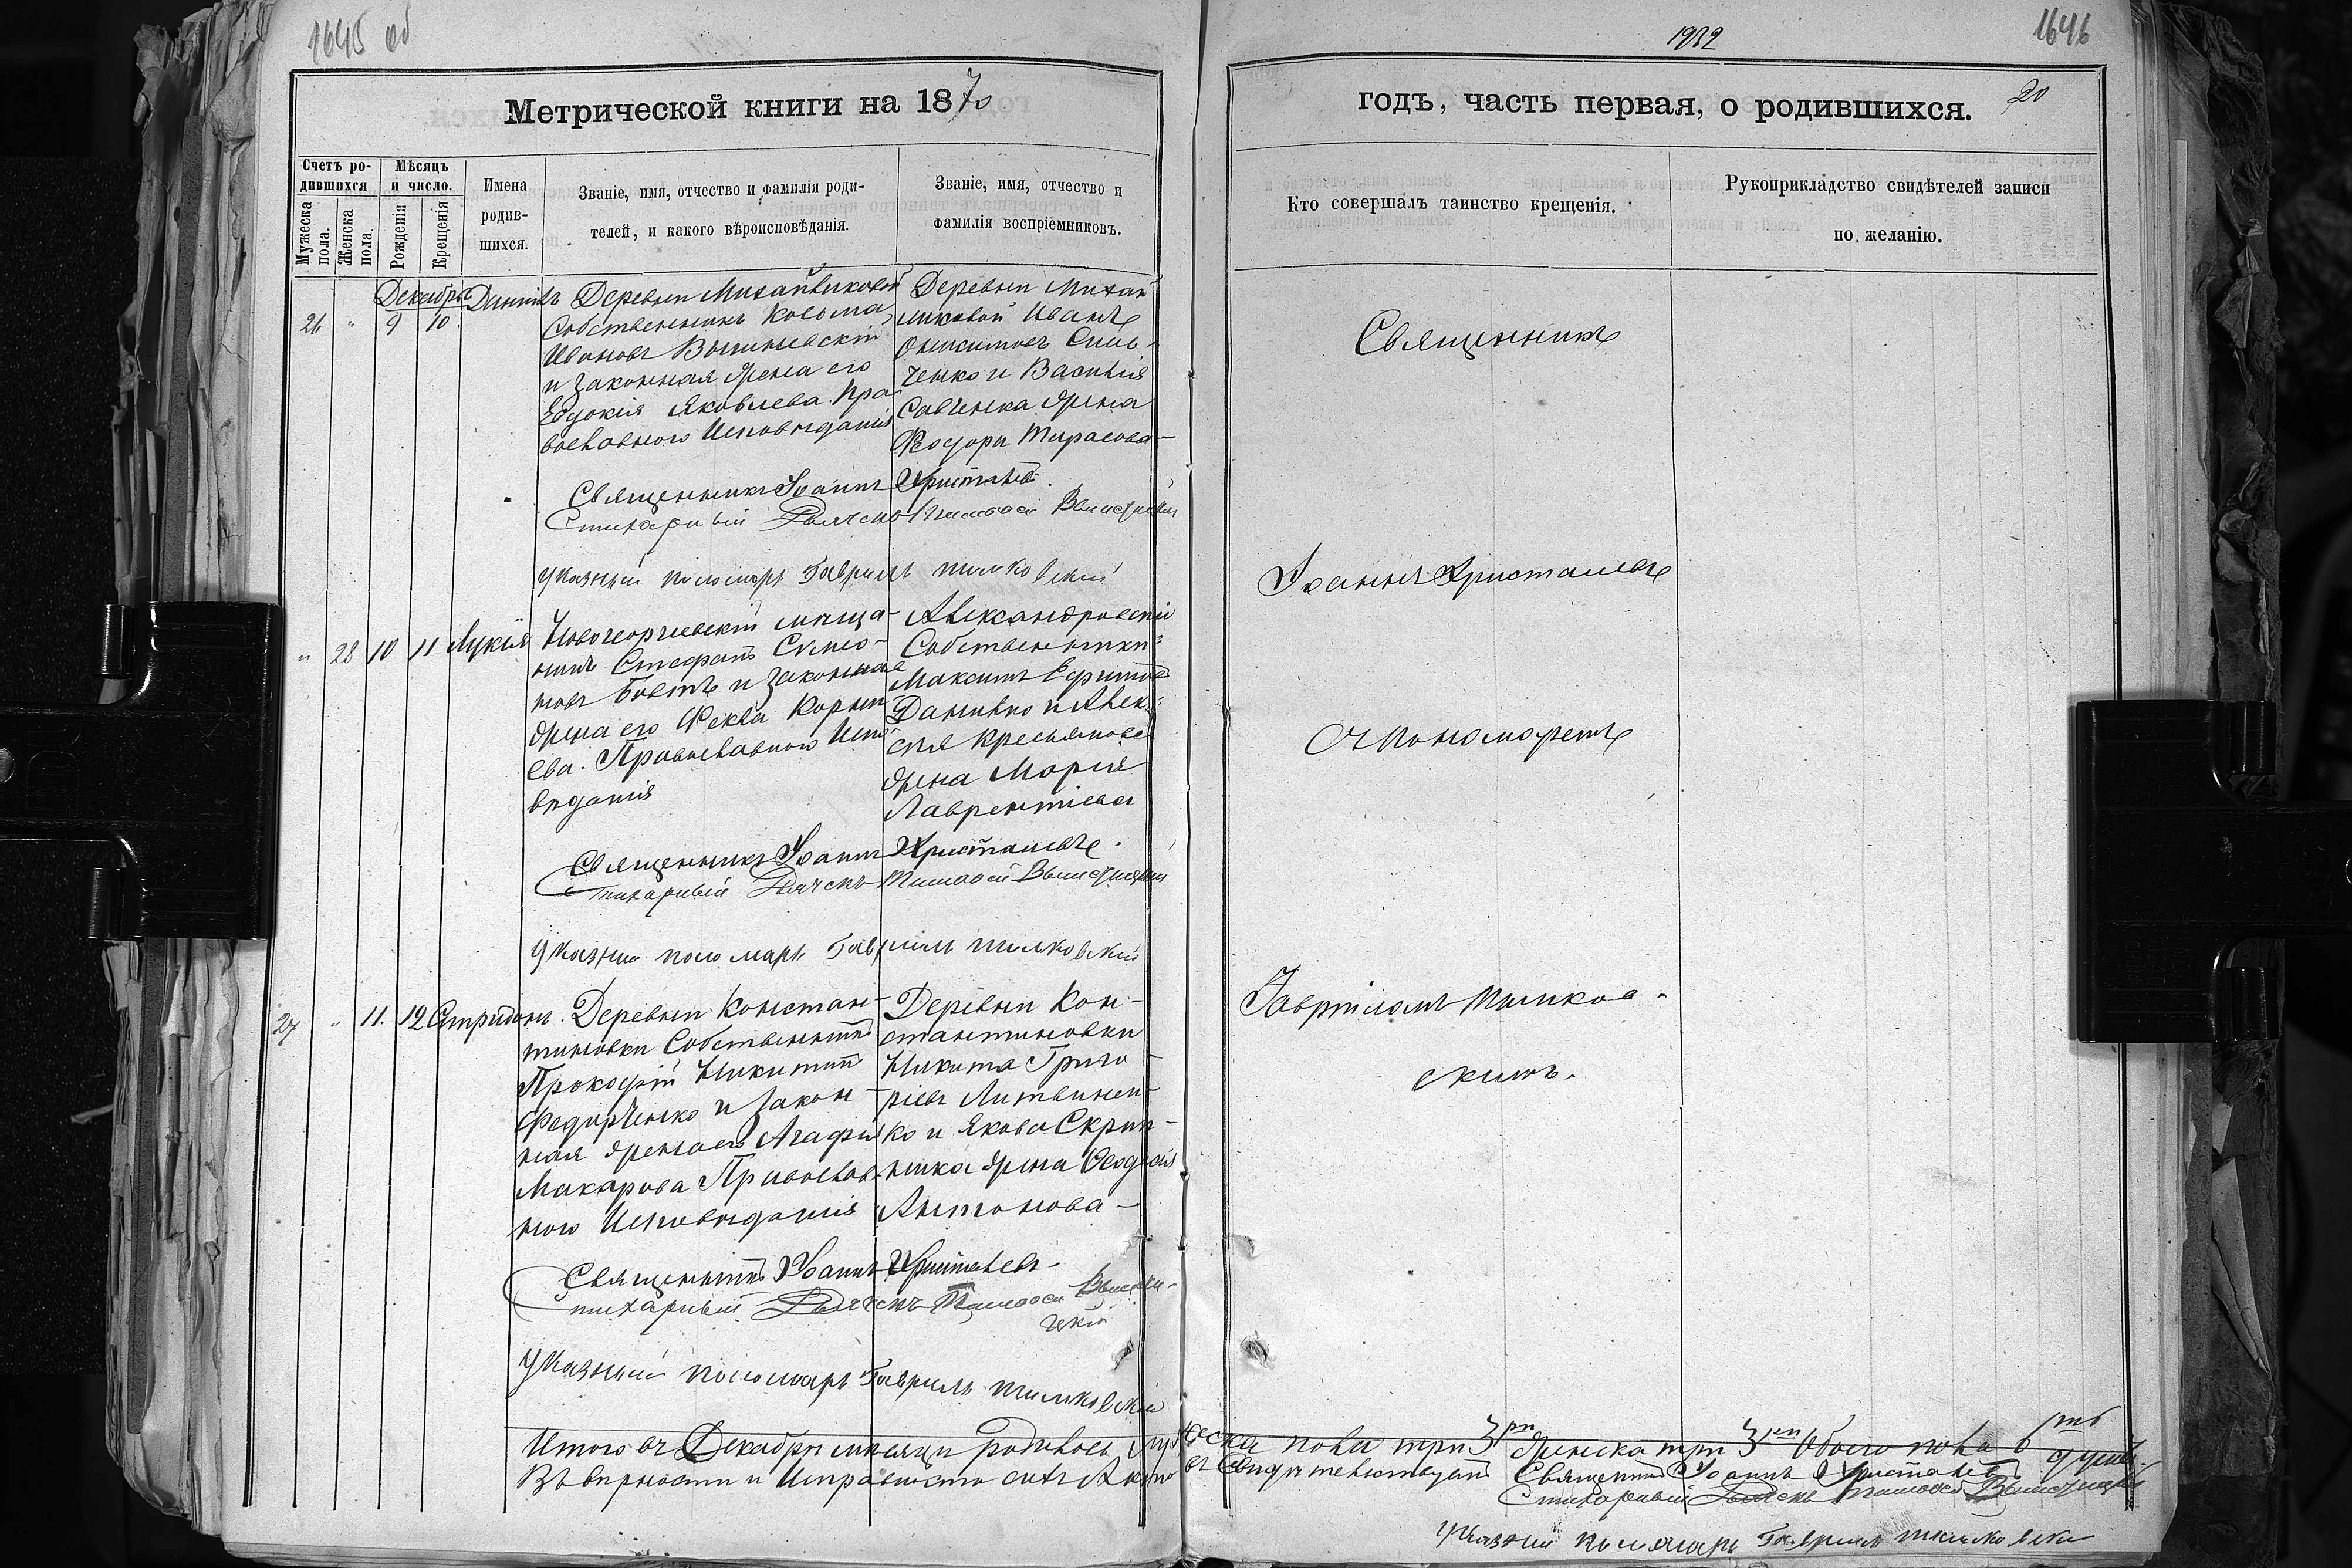 1645 об
1932
1646
Метрической книги на 1870
годъ, часть первая, о родившихся.
20
Счетъ родившихся
Мѣсяцъ и число.
Мужеска пола.
Женска пола.
Рожденія
Крещенія
Имена родившихся.
Званіе, имя, отчество и фамилія родителей, и какого вѣроисповѣданія.
Званіе, имя, отчество и фамилія воспріемниковъ.
Кто совершалъ таинство крещенія.
Рукоприкладство свидѣтелей записи
по желанію.
Декабрь
26 " 9 10
Даниилъ
Деревни Михайликовой
Собственникъ Косома
Ивановъ
и законная жена его
Евдокія Яковлева Пра
вославного Исповѣданія
Деревни Михай
ликовой Иванъ
Онисимовъ Сини
ченко и Василія
Савченка жена
Ѳеодора Тарасова
Священникъ Іоаннъ Христалевъ
Стихарный Дьячекъ Тимоѳей
Указный пономарь Гавриилъ
" 28 10 11
Лукія
Новогеоргіевскій мѣща-
нинъ Стефанъ Симео-
новъ и законная
жена его Ѳекла Корнѣ
ева. Православного Испо
вѣданія
Александровскіи
Собственники
Максимъ Ефимовъ
Данилко и Алек-
сѣя Кресьянова
жена Марія
Лаврентіева
Священникъ Іоаннъ Христалевъ
Стихарный Дьячекъ Тимоѳей
Указный пономарь Гавриилъ
27 " 11. 12
Спиридонъ.
Деревни Констан-
тиновки Собственникъ
Прокофій Никитинъ
Федорченко и закон-
ная жена его Агафія
Макарова Православ
ного Исповѣданія
Деревни Кон-
стантиновки
Никита Григо-
ріевъ Литвинен-
ко и Якова Скрип-
ника жена Ѳеодосія
Антонова
Священникъ Іоаннъ Христалевъ
Стихарный Дьячекъ Тимоѳей
Указный пономарь Гавриилъ
Священникъ
Іоаннъ Христалевъ
съ пономаремъ
Гавріиломъ
скимъ.
Итого въ Декабрѣ мѣсяцѣ родилось Мужеска пола три 3ри Женска три 3ри Обоего пола 6ть душъ.
Въ вѣрности и Исправности сихъ Актовъ свидѣтельствуемъ Священникъ Іоаннъ Христалевъ
Стихарный Дьячекъ Тимоѳей
Указный пономарь Гавриилъ